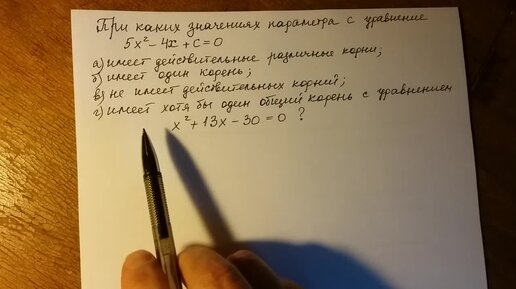 При каких значениях параметра с уравнение
5x² - 4x + c = 0
а) имеет действительные различные корни;
б) имеет один корень;
в) не имеет действительных корней;
г) имеет хотя бы один общий корень с уравнением
x² + 13x - 30 = 0 ?